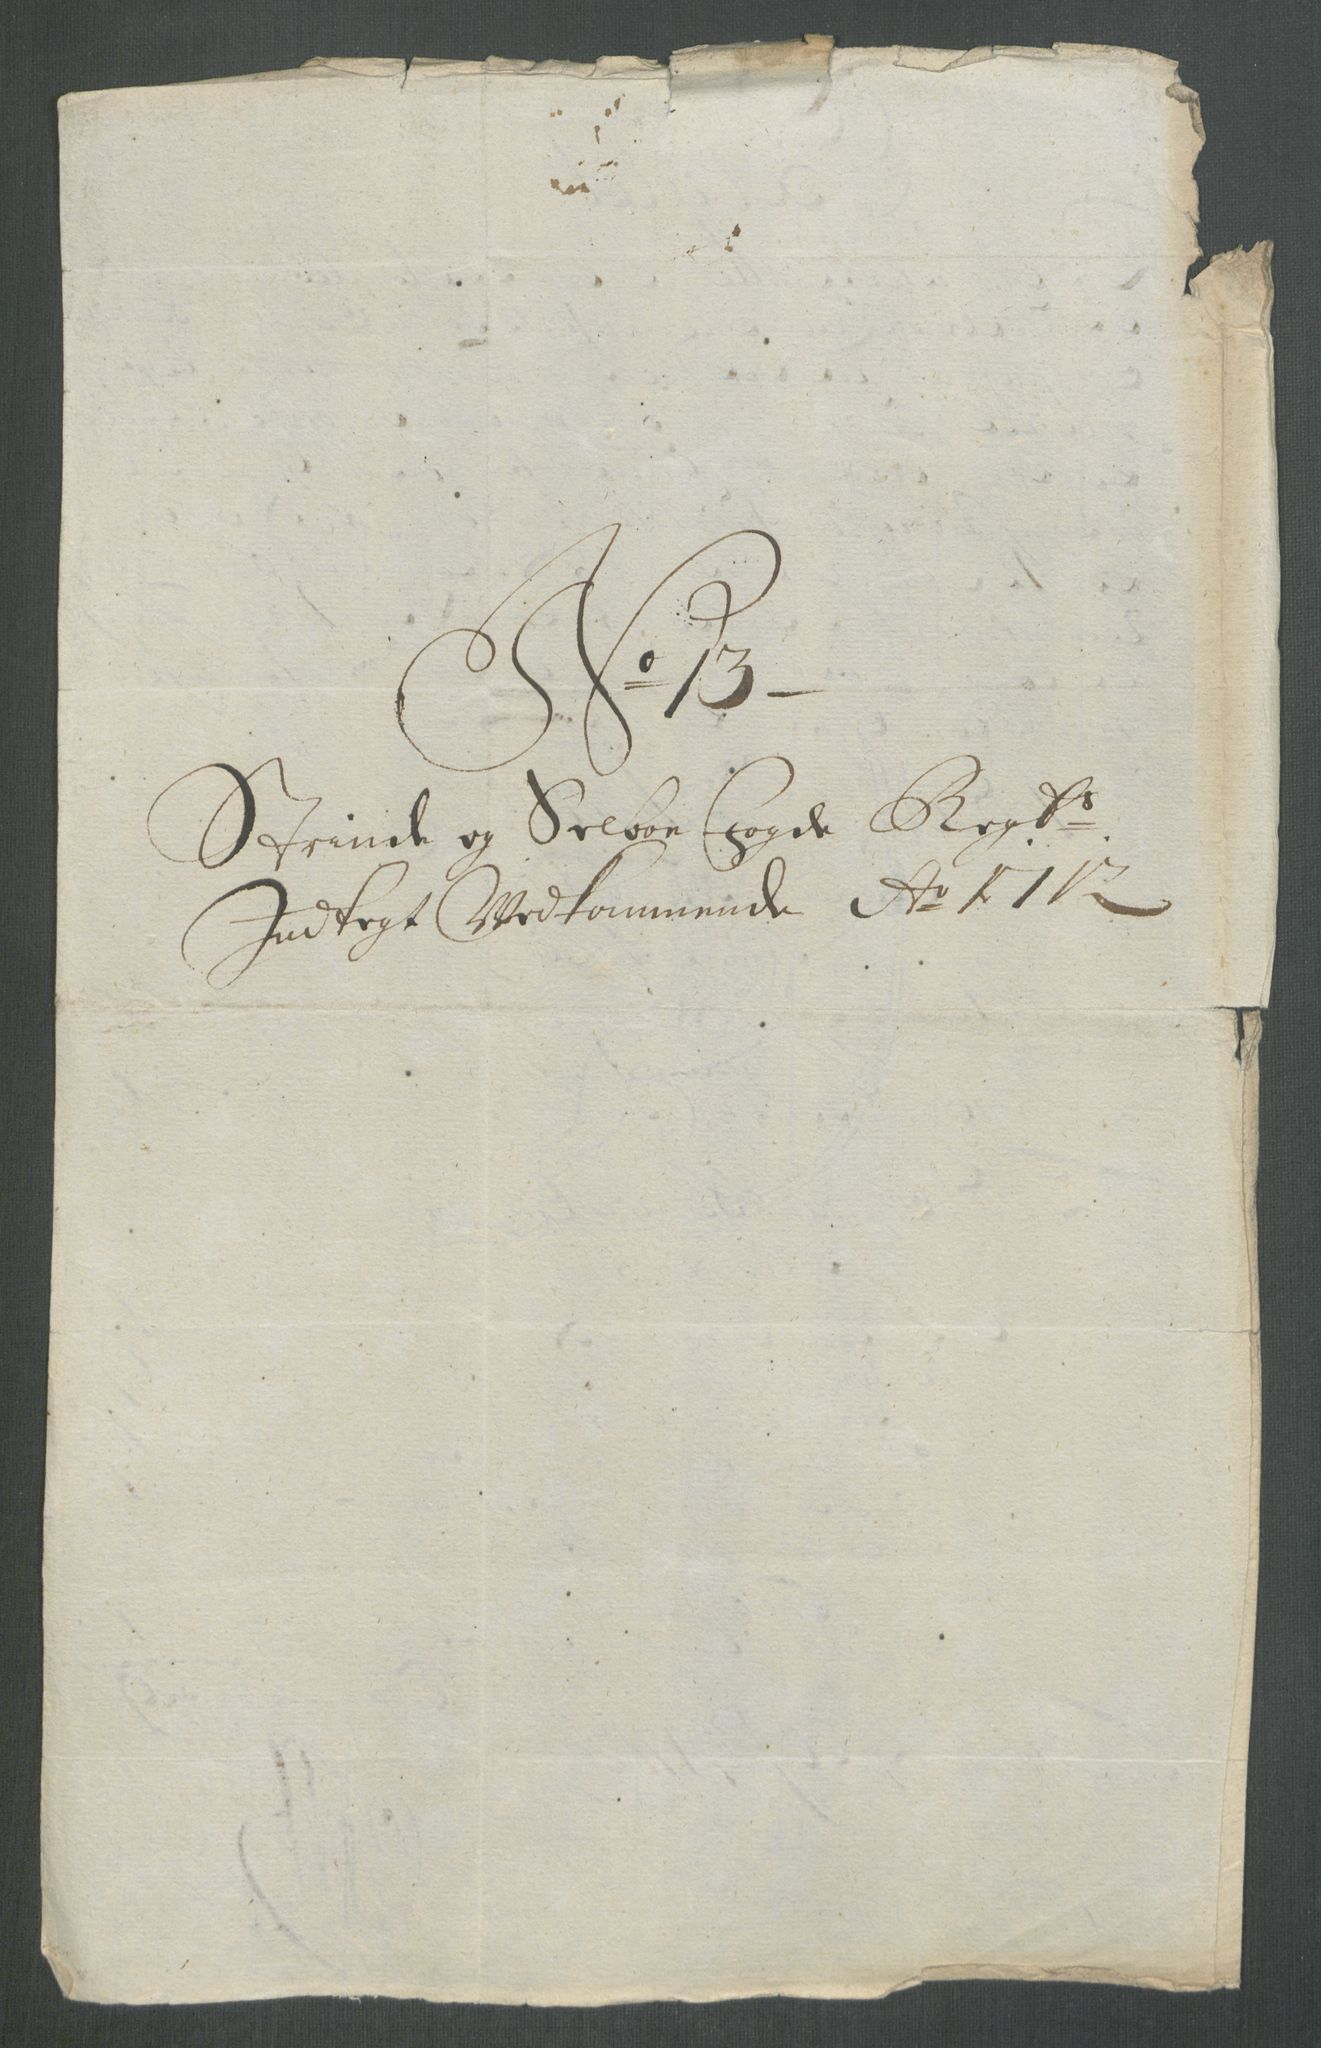 No 13
Strinde og Selboe Fogde Regk:s
Indtegt Vedkommende Ao 1712